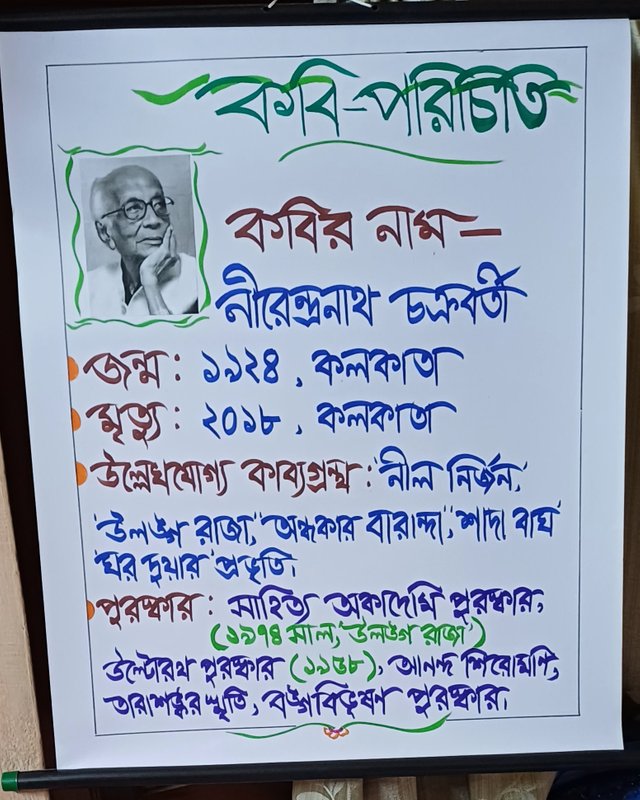 কবি-পরিচিতি
কবির নাম —
নীরেন্দ্রনাথ চক্রবর্তী
জন্ম : ১৯২৪ , কলকাতা
মৃত্যু : ২০১৮ , কলকাতা
উল্লেখযোগ্য কাব্যগ্রন্থ : 'নীল নির্জন,'
'উলঙ্গ রাজা,' 'অন্ধকার বারান্দা', 'শাদা বাঘ'
'ঘর দুয়ার' প্রভৃতি।
পুরস্কার : সাহিত্য অকাদেমি পুরস্কার,
(১৯৭৪ সাল, 'উলঙ্গ রাজা')
উল্টোরথ পুরস্কার (১৯৫৮), আনন্দ শিরোমণি,
তারাশঙ্কর স্মৃতি, বঙ্গবিভূষণ পুরস্কার।